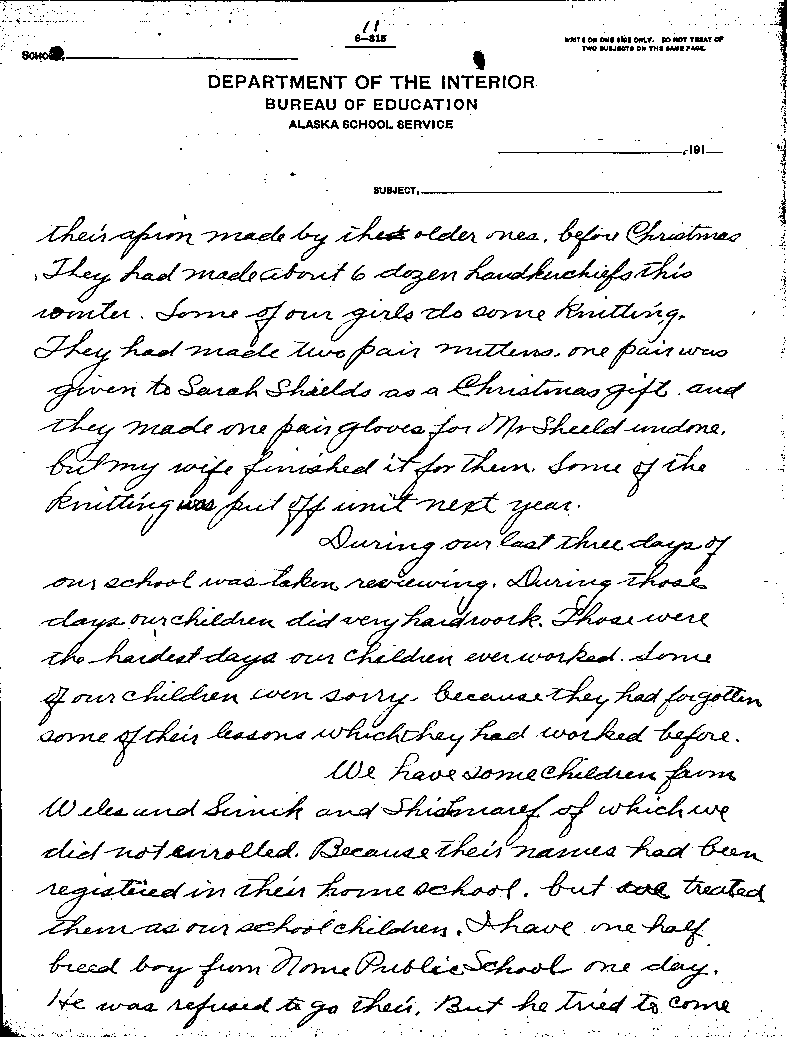 11
6—315
WRITE ON ONE SIDE ONLY. DO NOT TREAT OF
TWO SUBJECTS ON THE SAME PAGE.
SCHOOL,
DEPARTMENT OF THE INTERIOR
BUREAU OF EDUCATION
ALASKA SCHOOL SERVICE
, 191
SUBJECT,
their apron made by the older ones, before Christmas
They had made about 6 dozen handkerchiefs this
winter. Some of our girls do some knitting.
They had made two pair mittens, one pair was
given to Sarah Shields as a Christmas gift. and
they made one pair gloves for Mr Sheeld undone,
but my wife finished it for them. Some of the
knitting was put off unit next year.
During our last three days of
our school was taken reviewing. During those
days our children did very hard work. Those were
the hardest days our children ever worked. Some
of our children even sorry because they had forgotten
some of their lessons which they had worked before.
We have some children from
Wales and Sinuk and Shismaref of which we
did not enrolled. Because their names had been
registered in their home school, but we treated
them as our school children. I have one half
breed boy from Nome Public School one day.
He was refused to go their. But he tried to come